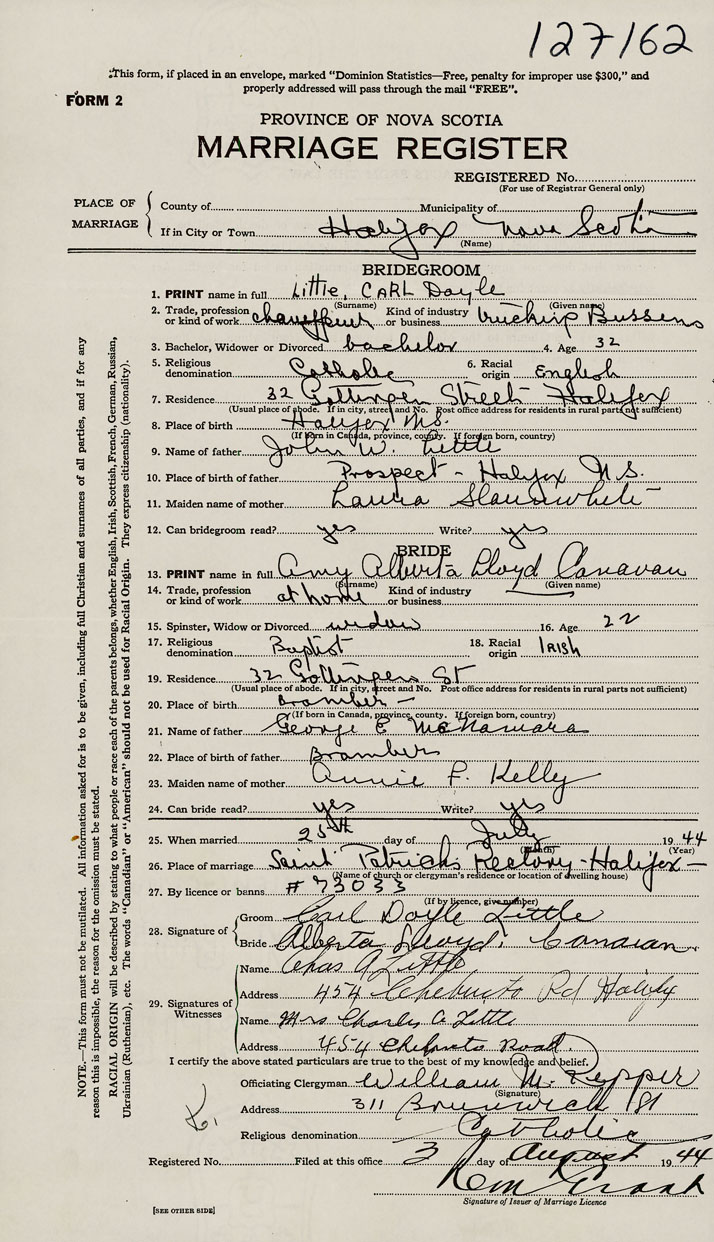 127162
This form, if placed in an envelope, marked "Dominion Statistics—Free, penalty for improper use $300," and
properly addressed will pass through the mail "FREE".
FORM 2
PROVINCE OF NOVA SCOTIA
MARRIAGE REGISTER
REGISTERED No.
(For use of Registrar General only)
PLACE OF MARRIAGE
County of Municipality of
If in City or Town Halifax Nova Scotia
(Name)
BRIDEGROOM
1. PRINT name in full Little, CARL Doyle
(Surname) (Given name)
2. Trade, profession or kind of work chauffeur Kind of industry or business trucking
3. Bachelor, Widower or Divorced bachelor 4. Age 32
5. Religious denomination Catholic 6. Racial origin English
7. Residence 32 Gottingen Street Halifax
(Usual place of abode. If in city, street and No. Post office address for residents in rural parts not sufficient)
8. Place of birth Halifax N.S.
(If born in Canada, province, county. If foreign born, country)
9. Name of father John W. Little
10. Place of birth of father Prospect - Halifax N.S.
11. Maiden name of mother Laura Slaunwhite
12. Can bridegroom read? yes Write? yes
BRIDE
13. PRINT name in full Amy Alberta Lloyd Canavan
(Surname) (Given name)
14. Trade, profession or kind of work at home Kind of industry or business
15. Spinster, Widow or Divorced widow 16. Age 22
17. Religious denomination Baptist 18. Racial origin IRISH
19. Residence 32 Gottingen St
(Usual place of abode. If in city, street and No. Post office address for residents in rural parts not sufficient)
20. Place of birth Bramber -
(If born in Canada, province, county. If foreign born, country)
21. Name of father George E McNamara
22. Place of birth of father Bramber
23. Maiden name of mother Annie F. Kelly
24. Can bride read? yes Write? yes
25. When married 25th day of July 1944
(Month) (Year)
26. Place of marriage Saint Patricks Rectory - Halifax -
(Name of church or clergyman's residence or location of dwelling house)
27. By licence or banns # 73033
(If by licence, give number)
28. Signature of Groom Carl Doyle Little
Bride Alberta Lloyd. Canavan
29. Signatures of Witnesses
Name Chas A Little
Address 454 Chebucto Rd Halifax
Name Mrs Charles A Little
Address 454 Chebucto Road.
I certify the above stated particulars are true to the best of my knowledge and belief.
Officiating Clergyman William M. Kepper
(Signature)
Address 311 Brunswick St
Religious denomination Catholic
Registered No. Filed at this office 3 day of August 1944
Signature of Issuer of Marriage Licence
[SEE OTHER SIDE]
NOTE.—This form must not be mutilated. All information asked for is to be given, including full Christian and surnames of all parties, and if for any
reason this is impossible, the reason for the omission must be stated.
RACIAL ORIGIN will be described by stating to what people or race each of the parents belongs, whether English, Irish, Scottish, French, German, Russian,
Ukrainian (Ruthenian), etc. The words "Canadian" or "American" should not be used for Racial Origin. They express citizenship (nationality).